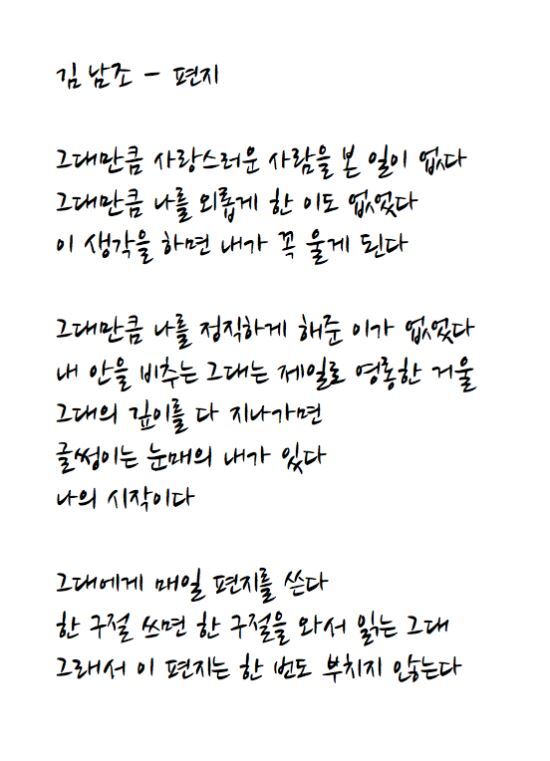 김남조 - 편지
그대만큼 사랑스러운 사람을 본 일이 없다
그대만큼 나를 외롭게 한 이도 없었다
이 생각을 하면 내가 꼭 울게 된다
그대만큼 나를 정직하게 해준 이가 없었다
내 안을 비추는 그대는 제일로 영롱한 거울
그대의 깊이를 다 지나가면
글썽이는 눈매의 내가 있다
나의 시작이다
그대에게 매일 편지를 쓴다
한 구절 쓰면 한 구절을 와서 읽는 그대
그래서 이 편지는 한 번도 부치지 않는다